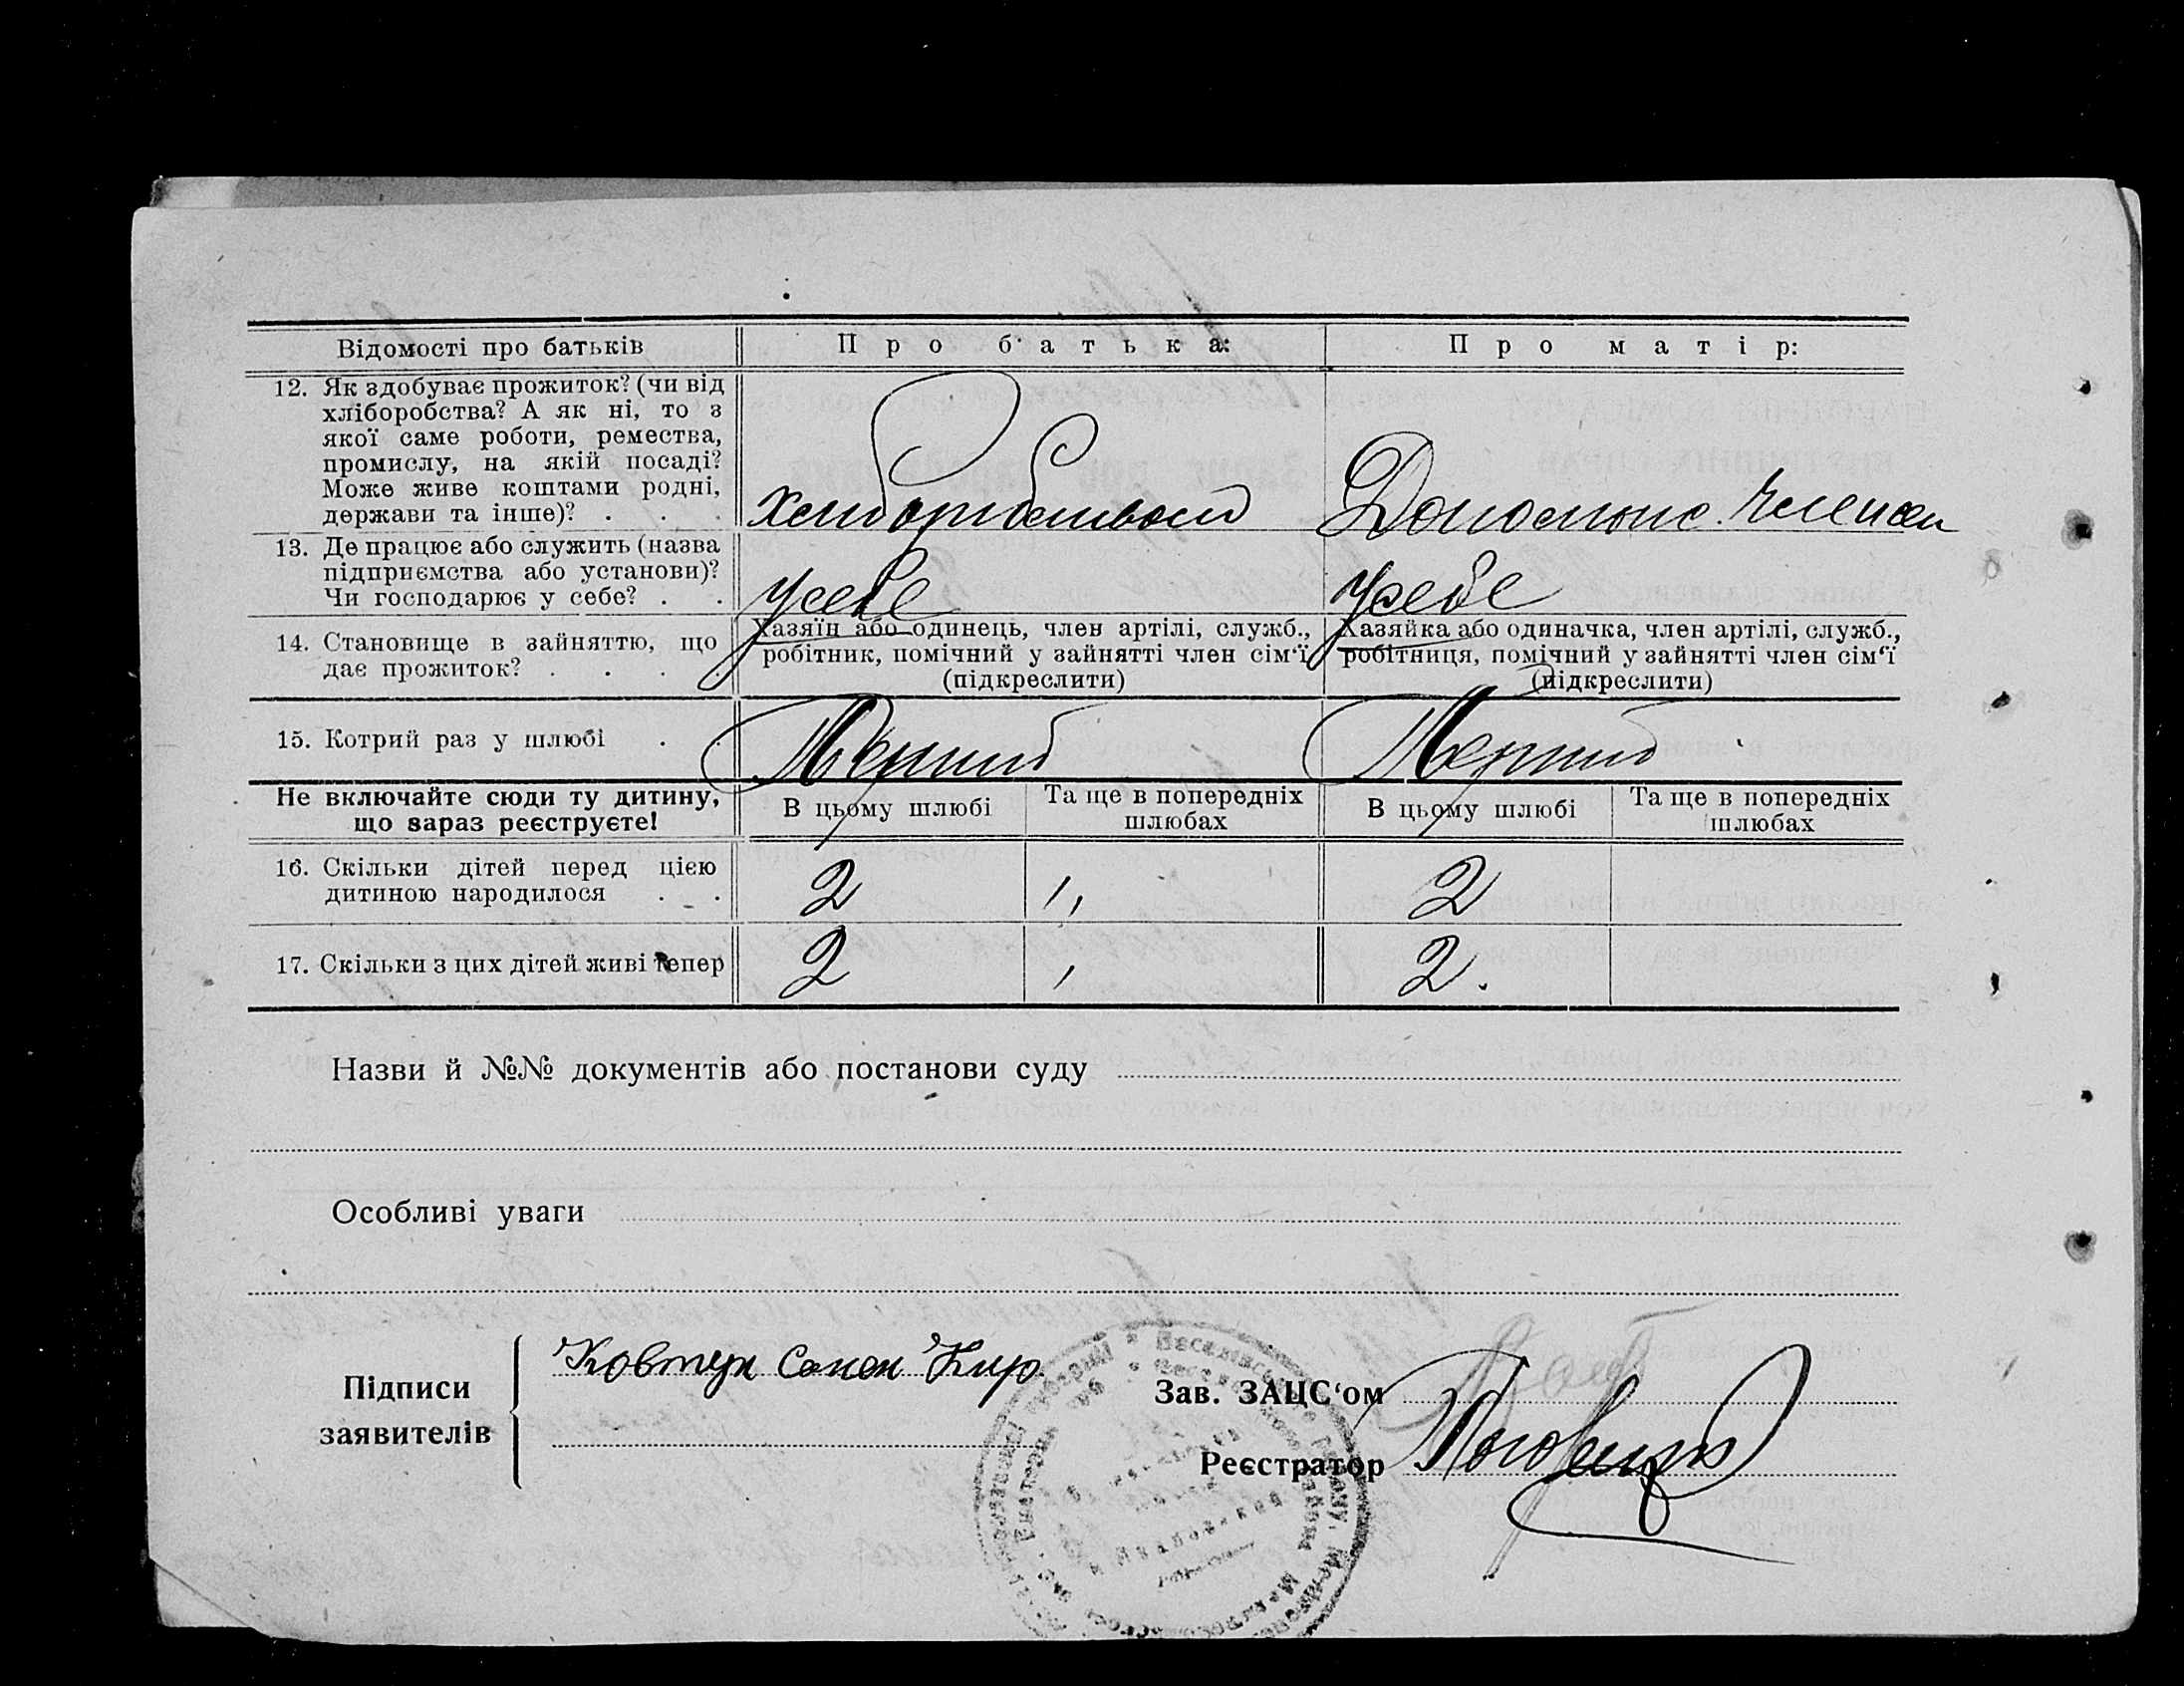 Відомості про батьків
Про батька:
Про матір:
12. Як здобуває прожиток? (чи від
хліборобства? А як ні, то з
якої саме роботи, ремества,
промислу, на якій посаді?
Може живе коштами родні,
держави та інше)? . . .
Хлиборобствош
Допомонс. Членсем
13. Де працює або служить (назва
підприємства або установи)?
Чи господарює у себе? . .
Усебе
Усебе
14. Становище в зайняттю, що
дає прожиток? . . . .
Хазяїн або одинець, член артілі, служб.,
робітник, помічний у зайнятті член сім‘ї
(підкреслити)
Хазяйка або одиначка, член артілі, служб.,
робітниця, помічний у зайнятті член сім‘ї
(підкреслити)
15. Котрий раз у шлюбі . .
Перший
Перший
Не включайте сюди ту дитину,
що зараз реєструєте!
В цьому шлюбі
Та ще в попередніх
шлюбах
В цьому шлюбі
Та ще в попередніх
шлюбах
16. Скільки дітей перед цією
дитиною народилося . . .
2
"
2
17. Скільки з цих дітей живі тепер
2
2.
Назви й №№ документів або постанови суду
Особливі уваги
Підписи
заявителів
Ковтун Семен Кир.
Зав. ЗАЦС‘ом
Реєстратор